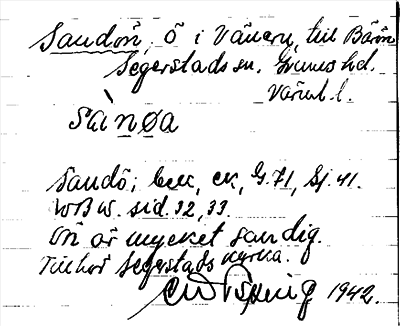 Sandön, ö i Vänern, till Bärön
Segerstads sn. Grums hd.
Värml. l.
sànøa
Sandö; bex, ex, G.71, Sj. 41.
WBW. sid. 32, 33.
Ön är mycket sandig.
Tillhör Segerstads kyrka.
1942.